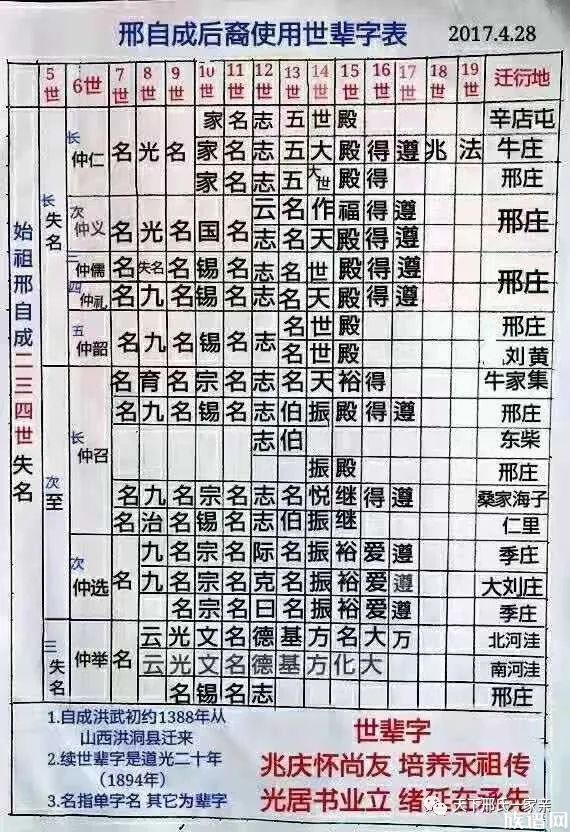 邢自成后裔使用世辈字表 2017.4.28
5世 6世 7世 8世 9世 10世 11世 12世 13世 14世 15世 16世 17世 18世 19世 迁衍地
始祖邢自成二三四世失名
长失名
长仲仁
家名志五世殿 辛店屯
名光名家名志五大殿得遵兆法 牛庄
家名志五大世殿得 邢庄
次仲义
名光名国名
云名作福得遵
志名天殿得遵
邢庄
三仲儒 名失名名锡名志名世殿得遵
四仲礼 名九名锡名志名天殿得遵
邢庄
五仲韶 名九名锡名志
名世殿 邢庄
名世殿 刘黄
次至
长仲召
名育名宗名志名天裕得 牛家集
名九名锡名志伯振殿得遵 邢庄
志伯 东柴
振殿 邢庄
名九名宗名志名悦继得遵 桑家海子
名治名锡名志伯振继 仁里
次仲选 名
九名宗名际名振裕爱遵 季庄
九名宗名克名振裕爱遵 大刘庄
名宗名曰名振裕爱遵 季庄
三失名
仲举 名
云光文名德基方名大万 北河洼
云光文名德基方化大 南河洼
名锡名志 邢庄
1.自成洪武初约1388年从
山西洪洞县迁来
2.续世辈字是道光二十年
（1894年）
3.名指单字名 其它为辈字
世辈字
兆庆怀尚友 培养永祖传
光居书业立 绪延东承先
天下邢氏一家亲
族谱网